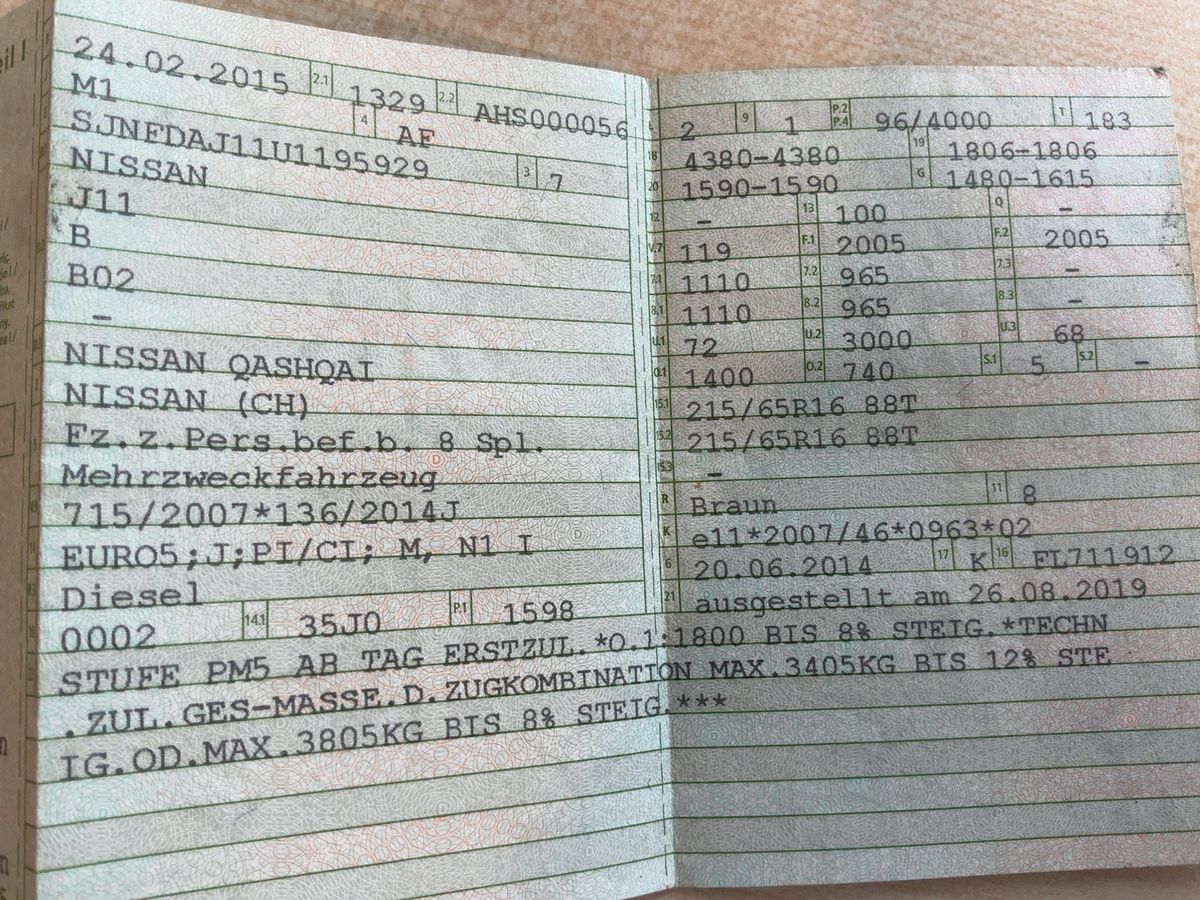 eil I
24.02.2015 2.1 1329 2.2 AHS000056
M1 4 AF
SJNFDAJ11U1195929 3 7
NISSAN
J11
B
B02
–
NISSAN QASHQAI
NISSAN (CH)
Fz.z.Pers.bef.b. 8 Spl.
Mehrzweckfahrzeug
715/2007*136/2014J
EURO5;J;PI/CI; M, N1 I
Diesel
0002 14.1 35J0 P.1 1598
2 9 1 P.2 P.4 96/4000 T 183
18 4380-4380 19 1806-1806
20 1590-1590 G 1480-1615
12 – 13 100 Q –
V.7 119 F.1 2005 F.2 2005
7.1 1110 7.2 965 7.3 –
8.1 1110 8.2 965 8.3 –
U.1 72 U.2 3000 U.3 68
O.1 1400 O.2 740 S.1 5 S.2 –
15.1 215/65R16 88T
15.2 215/65R16 88T
15.3 –
R Braun 11 8
K e11*2007/46*0963*02
6 20.06.2014 17 K 16 FL711912
21 ausgestellt am 26.08.2019
STUFE PM5 AB TAG ERSTZUL.*O.1:1800 BIS 8% STEIG.*TECHN
.ZUL.GES-MASSE.D.ZUGKOMBINATION MAX.3405KG BIS 12% STE
IG.OD.MAX.3805KG BIS 8% STEIG.***